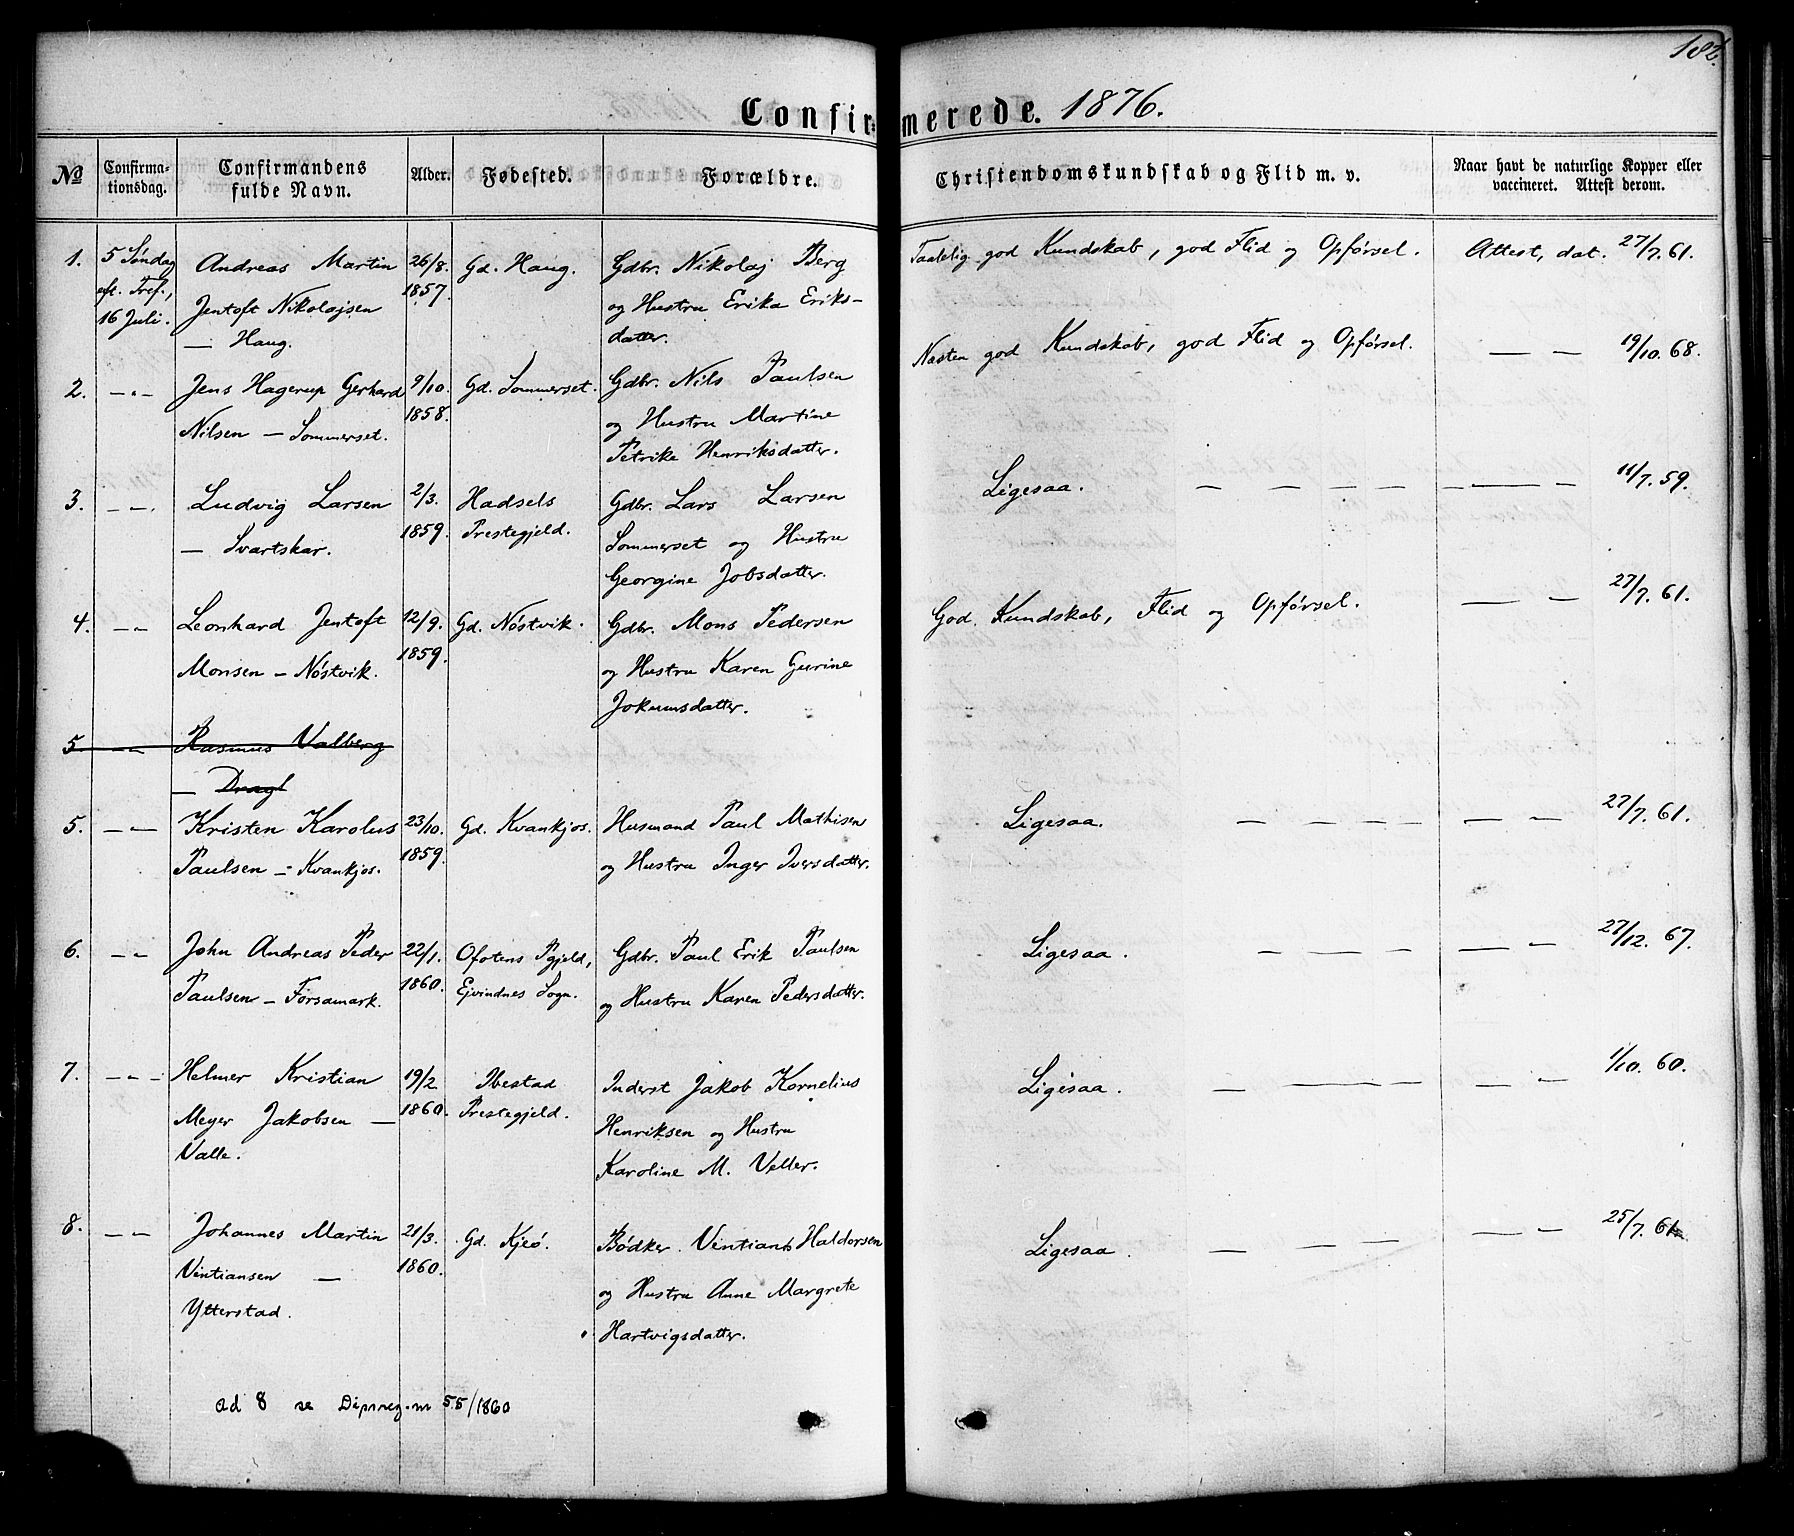 182.
Confirmerede. 1876.
№
Confirmationsdag.
Confirmandens fulde Navn.
Alder.
Fødested.
Forældre.
Christendomskundskab og Flid m. v.
Naar havt de naturlige Kopper eller vaccineret. Attest derom.
1. 5 Søndag eft. Tref., 16 Juli.
Andreas Martin
Jentoft Nikolajsen
— Haug.
26/8. 1857.
Gd. Haug.
Gdbr. Nikolaj Berg
og Hustru Erika Eriks-
datter.
Taalelig god Kundskab, god Flid og Opførsel.
Attest, dat. 27/7. 61.
2. — " —
Jens Hagerup Gerhard
Nilsen — Sommerset.
9/10. 1858.
Gd. Sommerset.
Gdbr. Nils Paulsen
og Hustru Martine
Petrike Henriksdatter.
Næsten god Kundskab, god Flid og Opførsel.
— — 19/10. 68.
3. — " —
Ludvig Larsen
— Svartskar.
2/3. 1859.
Hadsels
Prestegjeld.
Gdbr. Lars Larsen
Sommerset og Hustru
Georgine Jobsdatter.
Ligesaa. — — — — —
— — 11/7. 59.
4. — " —
Leonhard Jentoft
Monsen — Nöstvik.
12/9. 1859.
Gd. Nöstvik.
Gdbr. Mons Pedersen
og Hustru Karen Gurine
Jokumsdatter.
God Kundskab, Flid og Opførsel.
— — 27/7. 61.
5 — " — Rasmus Valberg
— Dragl
5. — " —
Kristen Karolus
Paulsen — Kvankjos.
23/10. 1859.
Gd. Kvankjos.
Husmand Paul Mathisen
og Hustru Inger Iversdatter.
Ligesaa. — — — —
— — 27/7. 61.
6. — " —
John Andreas Peder
Paulsen — Forsamark.
22/1. 1860.
Ofotens Pgjeld,
Ejvindnes Sogn.
Gdbr. Paul Erik Paulsen
og Hustru Karen Pedersdatter.
Ligesaa. — — — —
— — 27/12. 67.
7. — " —
Helmer Kristian
Meyer Jakobsen —
Valle.
19/2 1860.
Ibestad
Prestegjeld.
Inderst Jakob Kornelius
Henriksen og Hustru
Karoline M. Veller.
Ligesaa. — — — — —
— — 1/10. 60.
8. — " —
Johannes Martin
Vintiansen —
Ytterstad.
21/3. 1860.
Gd. Kjeö.
Bödker. Vintians Haldorsen
og Hustru Anne Margrete
Hartvigsdatter.
Ligesaa. — — — —
— — 25/7. 61.
ad 8 se 55/1860